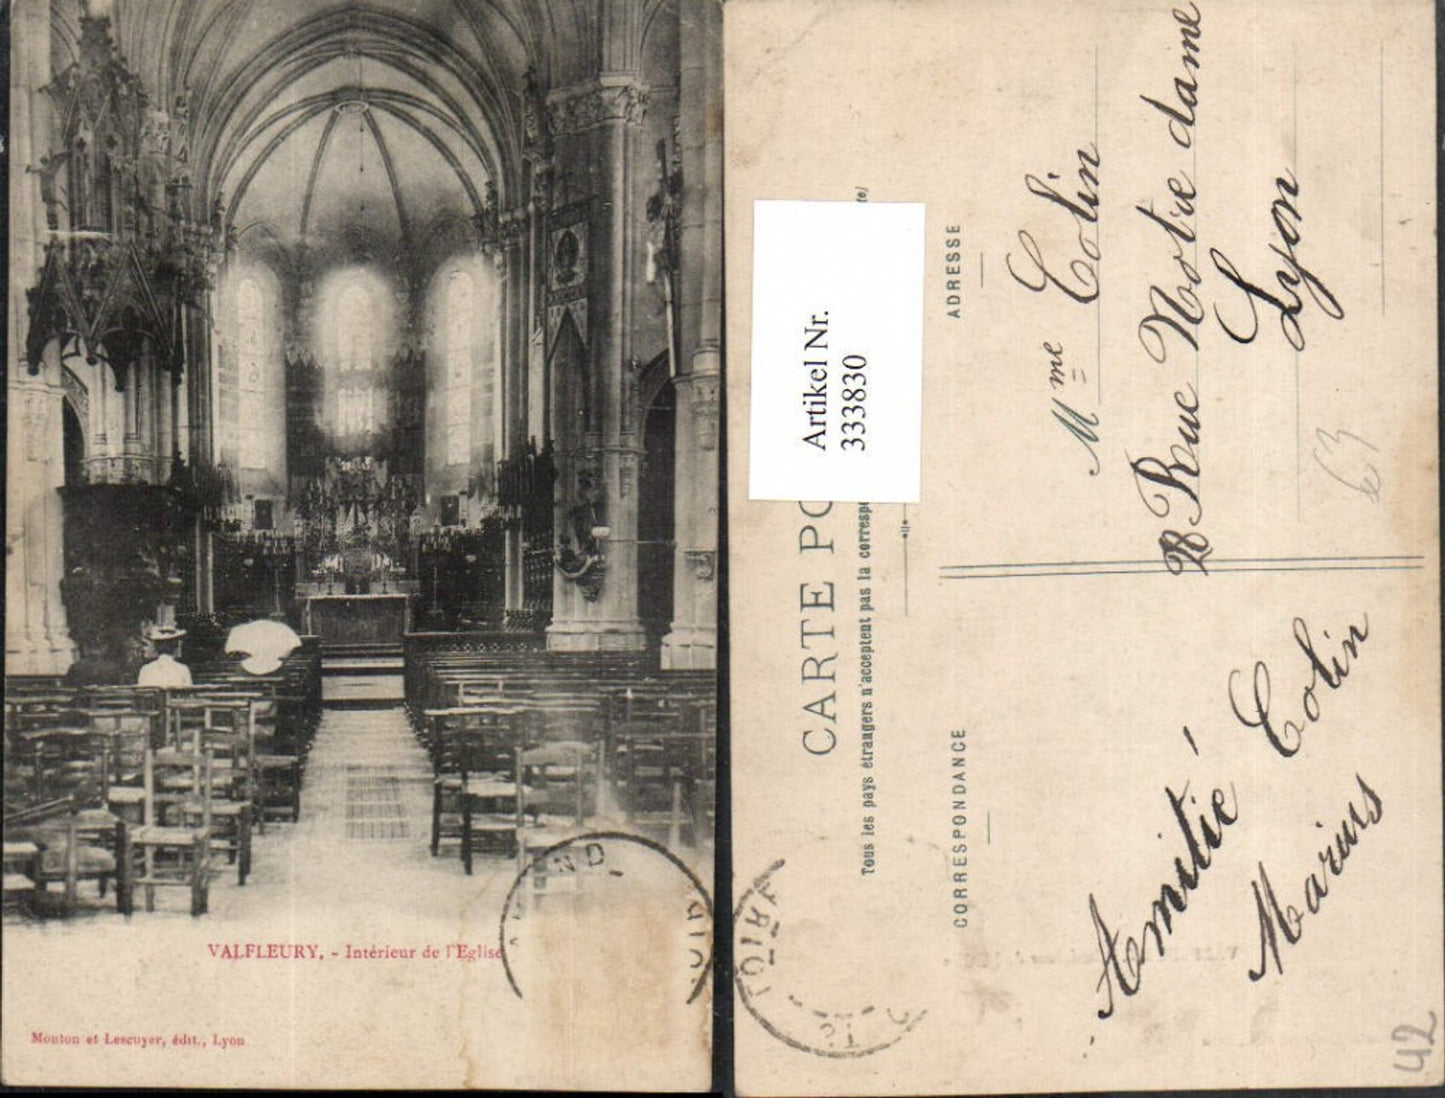 VALFLEURY, - Intérieur de l'Eglise
Mouton et Lescuyer, édit., Lyon
Artikel Nr.
333830
CARTE PO
Tous les pays étrangers n'acceptent pas la correspo
te)
ADRESSE
CORRESPONDANCE
Mme Colin
Rue Notre dame
Lyon
63
Amitié
Colin
Marius
42
LOIRE